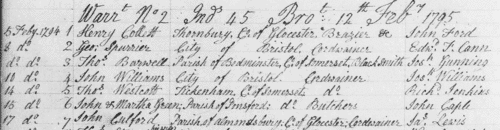 Warrt. No 2 Ind. 45 Brot. 12th Feby 1795
5 Feby. 1794 1 Henry Collett Thornbury, Co. of Glocester Brazier &c John Ford
8 do. 2 Geo. Spurrier City of Bristol Cordwainer Edwd. T. Cann
do. do. 3 Thos. Barwell Parish of Bedminster, C. of Somerset, Black Smith Jos. Gunning
10 do. 4 John Williams City of Bristol. Cordwainer Jos. Williams
14 do. 5 Thos. Westcott Tickenham, C. of Somerset do. Richd. Jenkins
15 do. 6 John & Martha Green, Parish of do. Butchers John Cagle
17 do. 7 John Parish of Almondsbury, C. of Glocester, Cordwainer Jas. Lewis